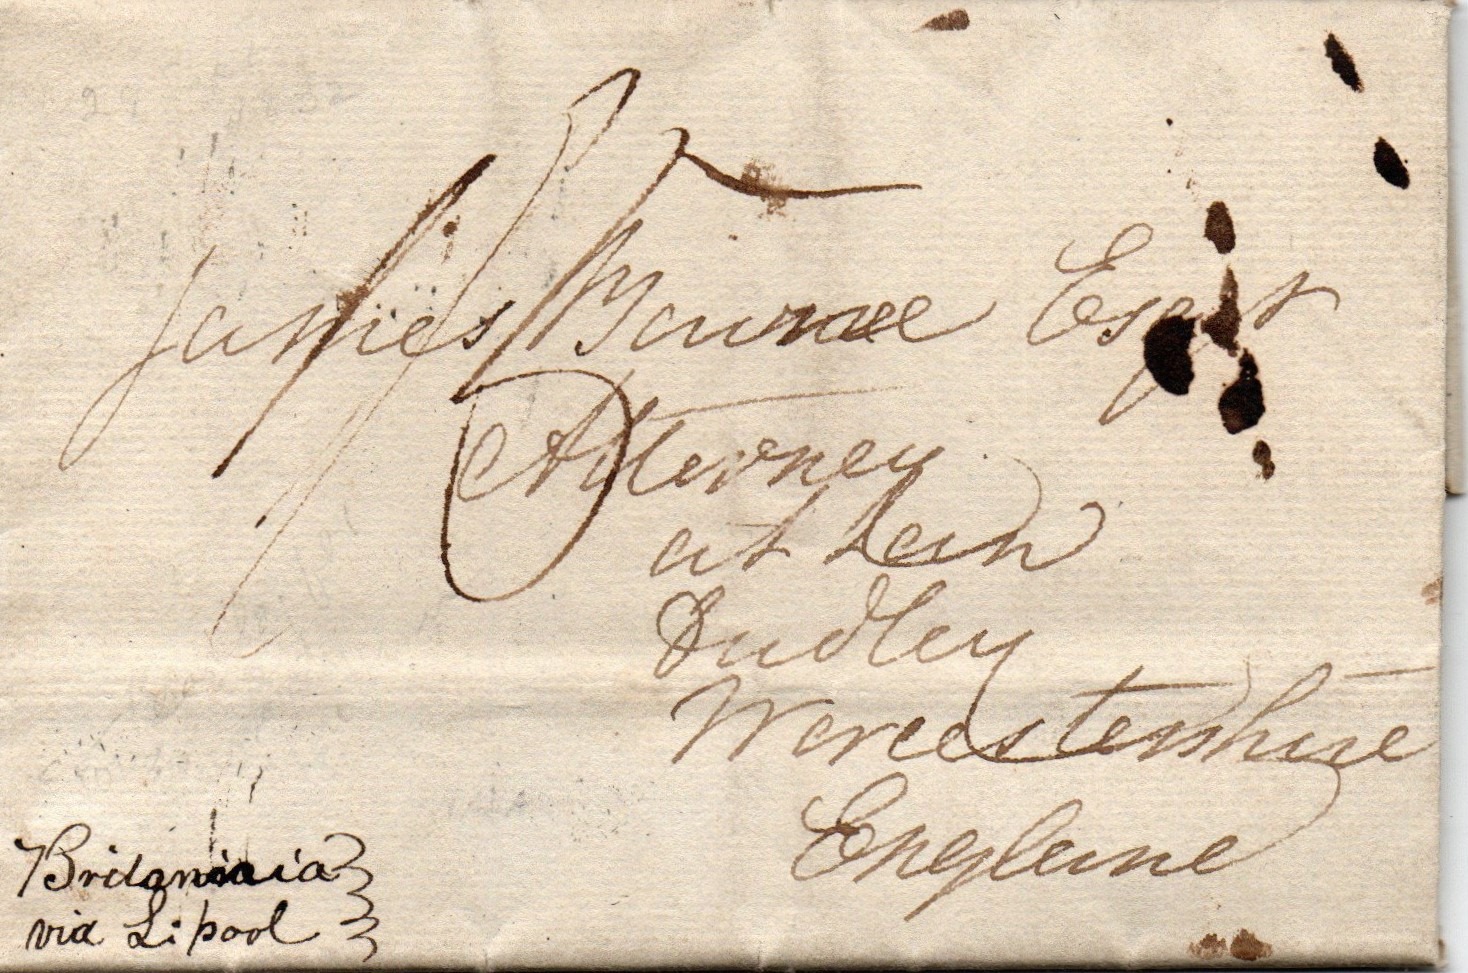 James Bourne Esqr
Attorney
at Law
Dudley
Worcestershire
England
Britannia
via Lipool